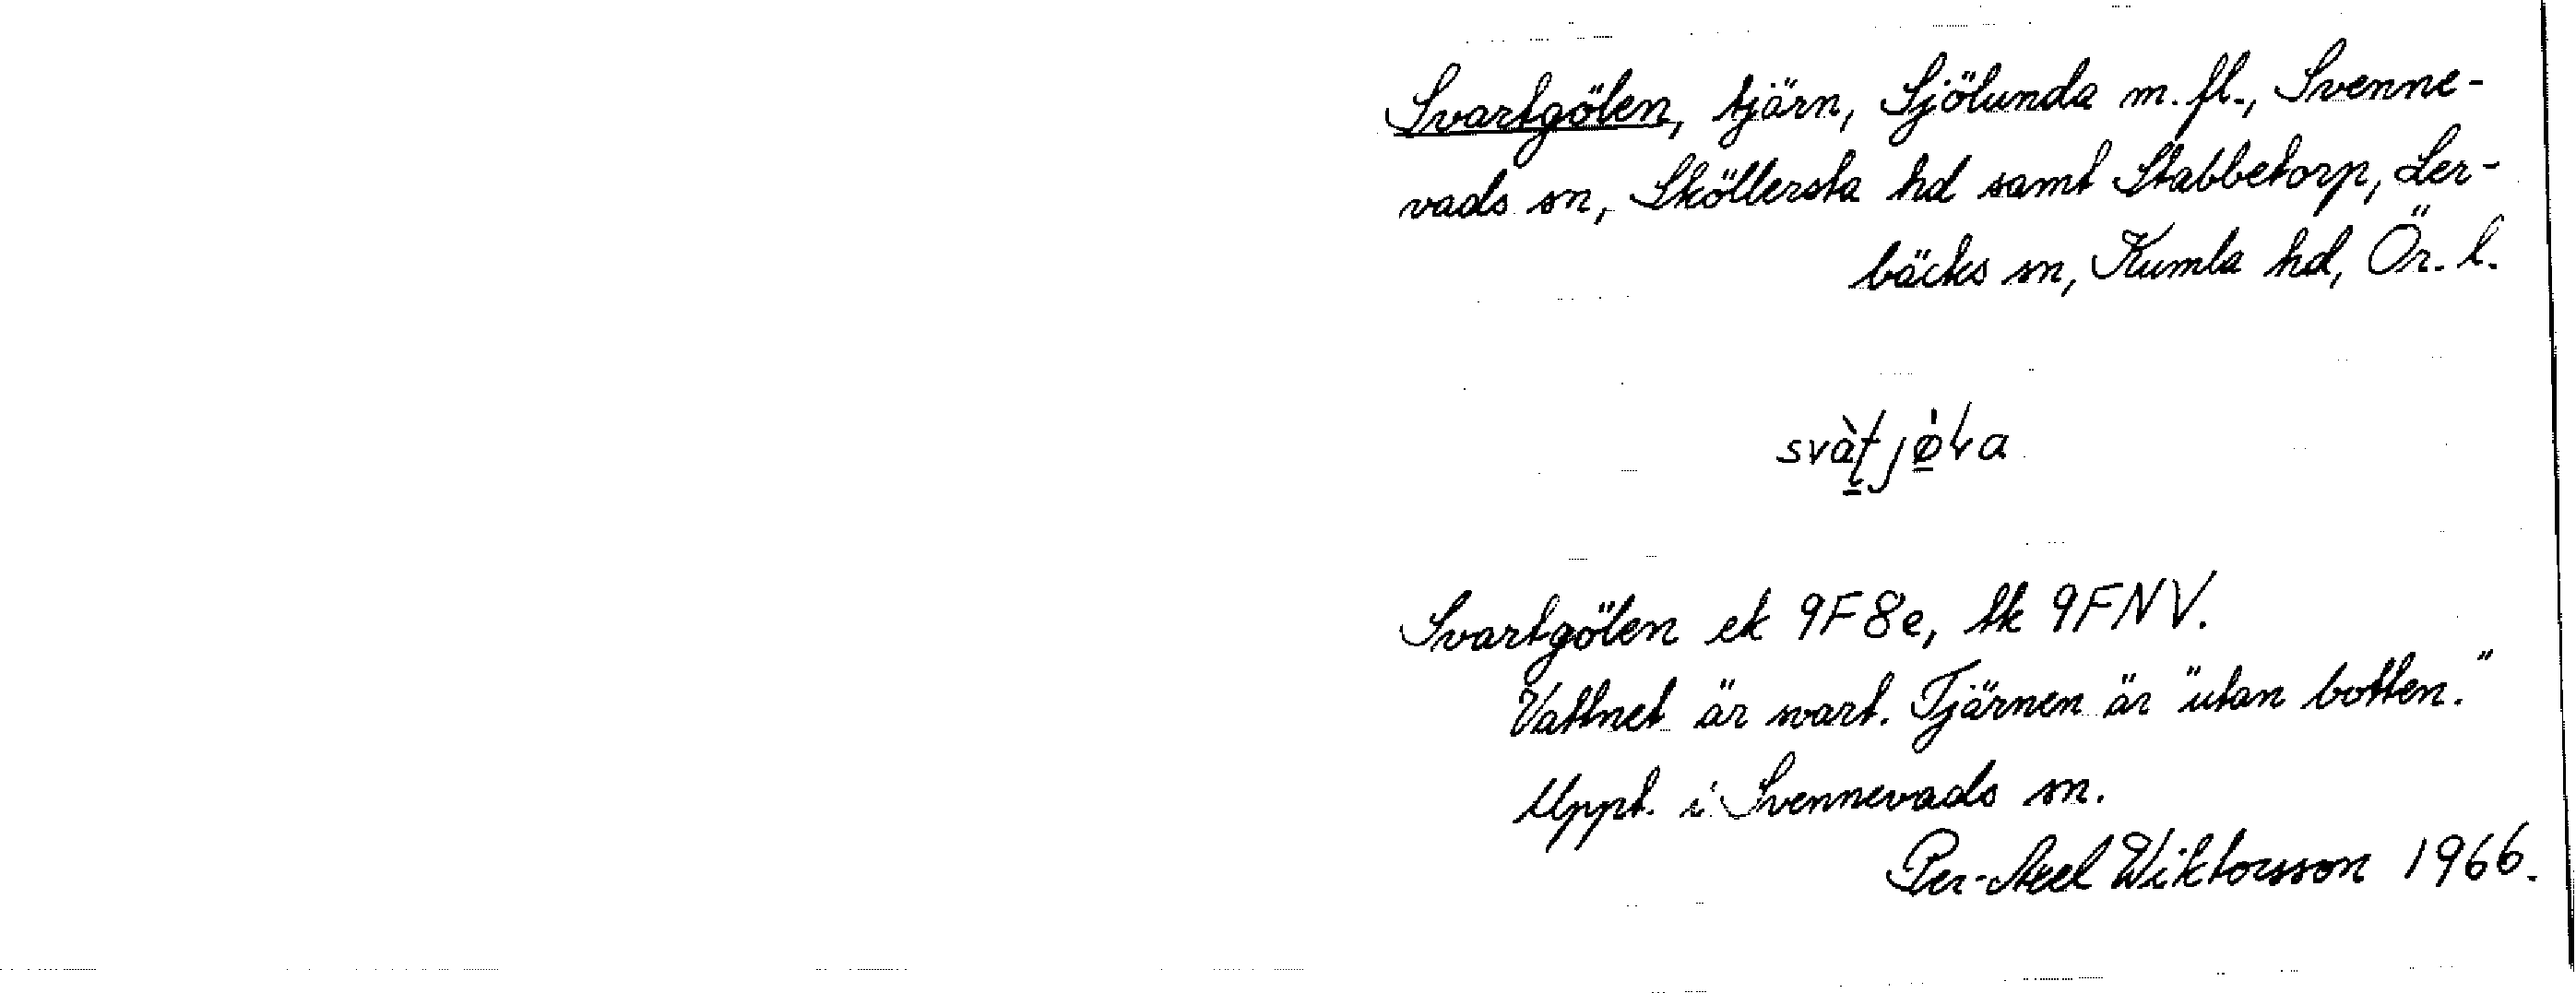 Svartgölen, tjärn, Sjölunda m. fl., Svenne-
vads sn, Sköllersta hd samt Stabbetorp, Ler-
bäcks sn, Kumla hd, Ör. l.
svàt̠jø̠̀ɽa
Svartgölen ek 9F8e, tk 9FNV.
Vattnet är svart. Tjärnen är "utan botten."
Uppt. i Svennevads sn.
Per-Axel Wiktorsson 1966.